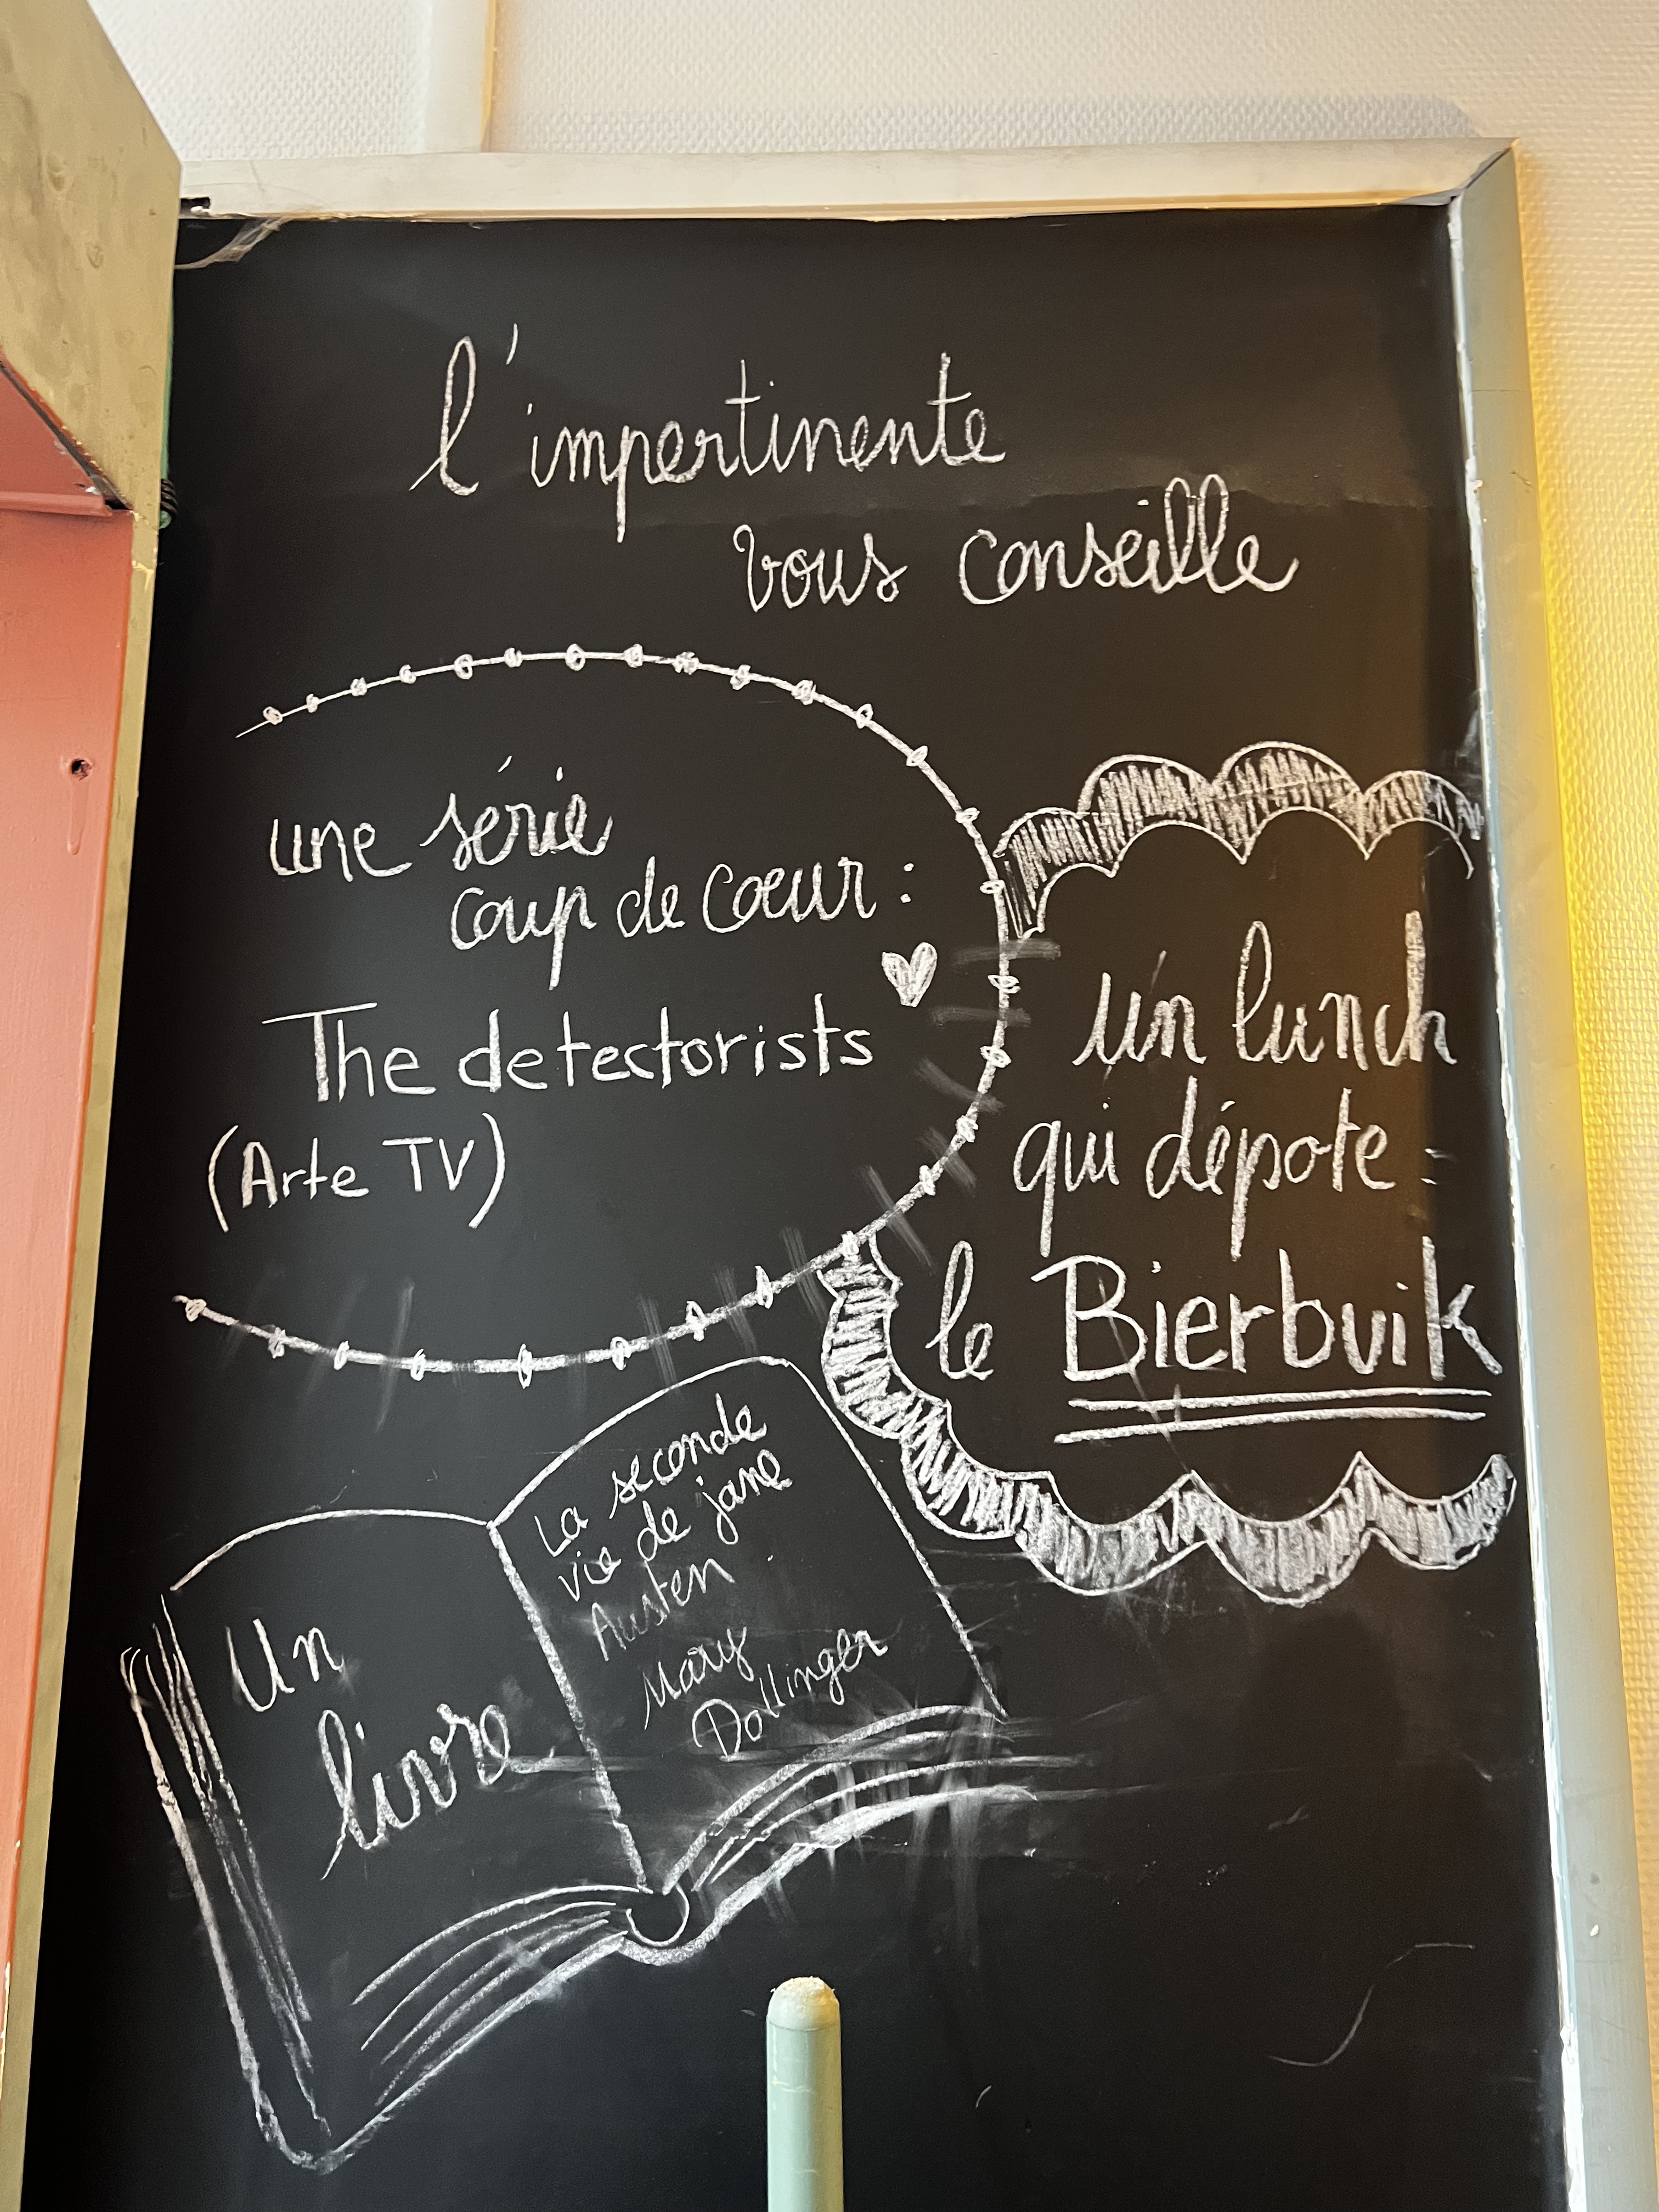 l'impertinente
vous conseille
une série
coup de coeur :
The detectorists
(Arte TV)
un lunch
qui dépote :
le Bierbuik
Un
livre
La seconde
vie de jane
Austen
Mary
Dollinger